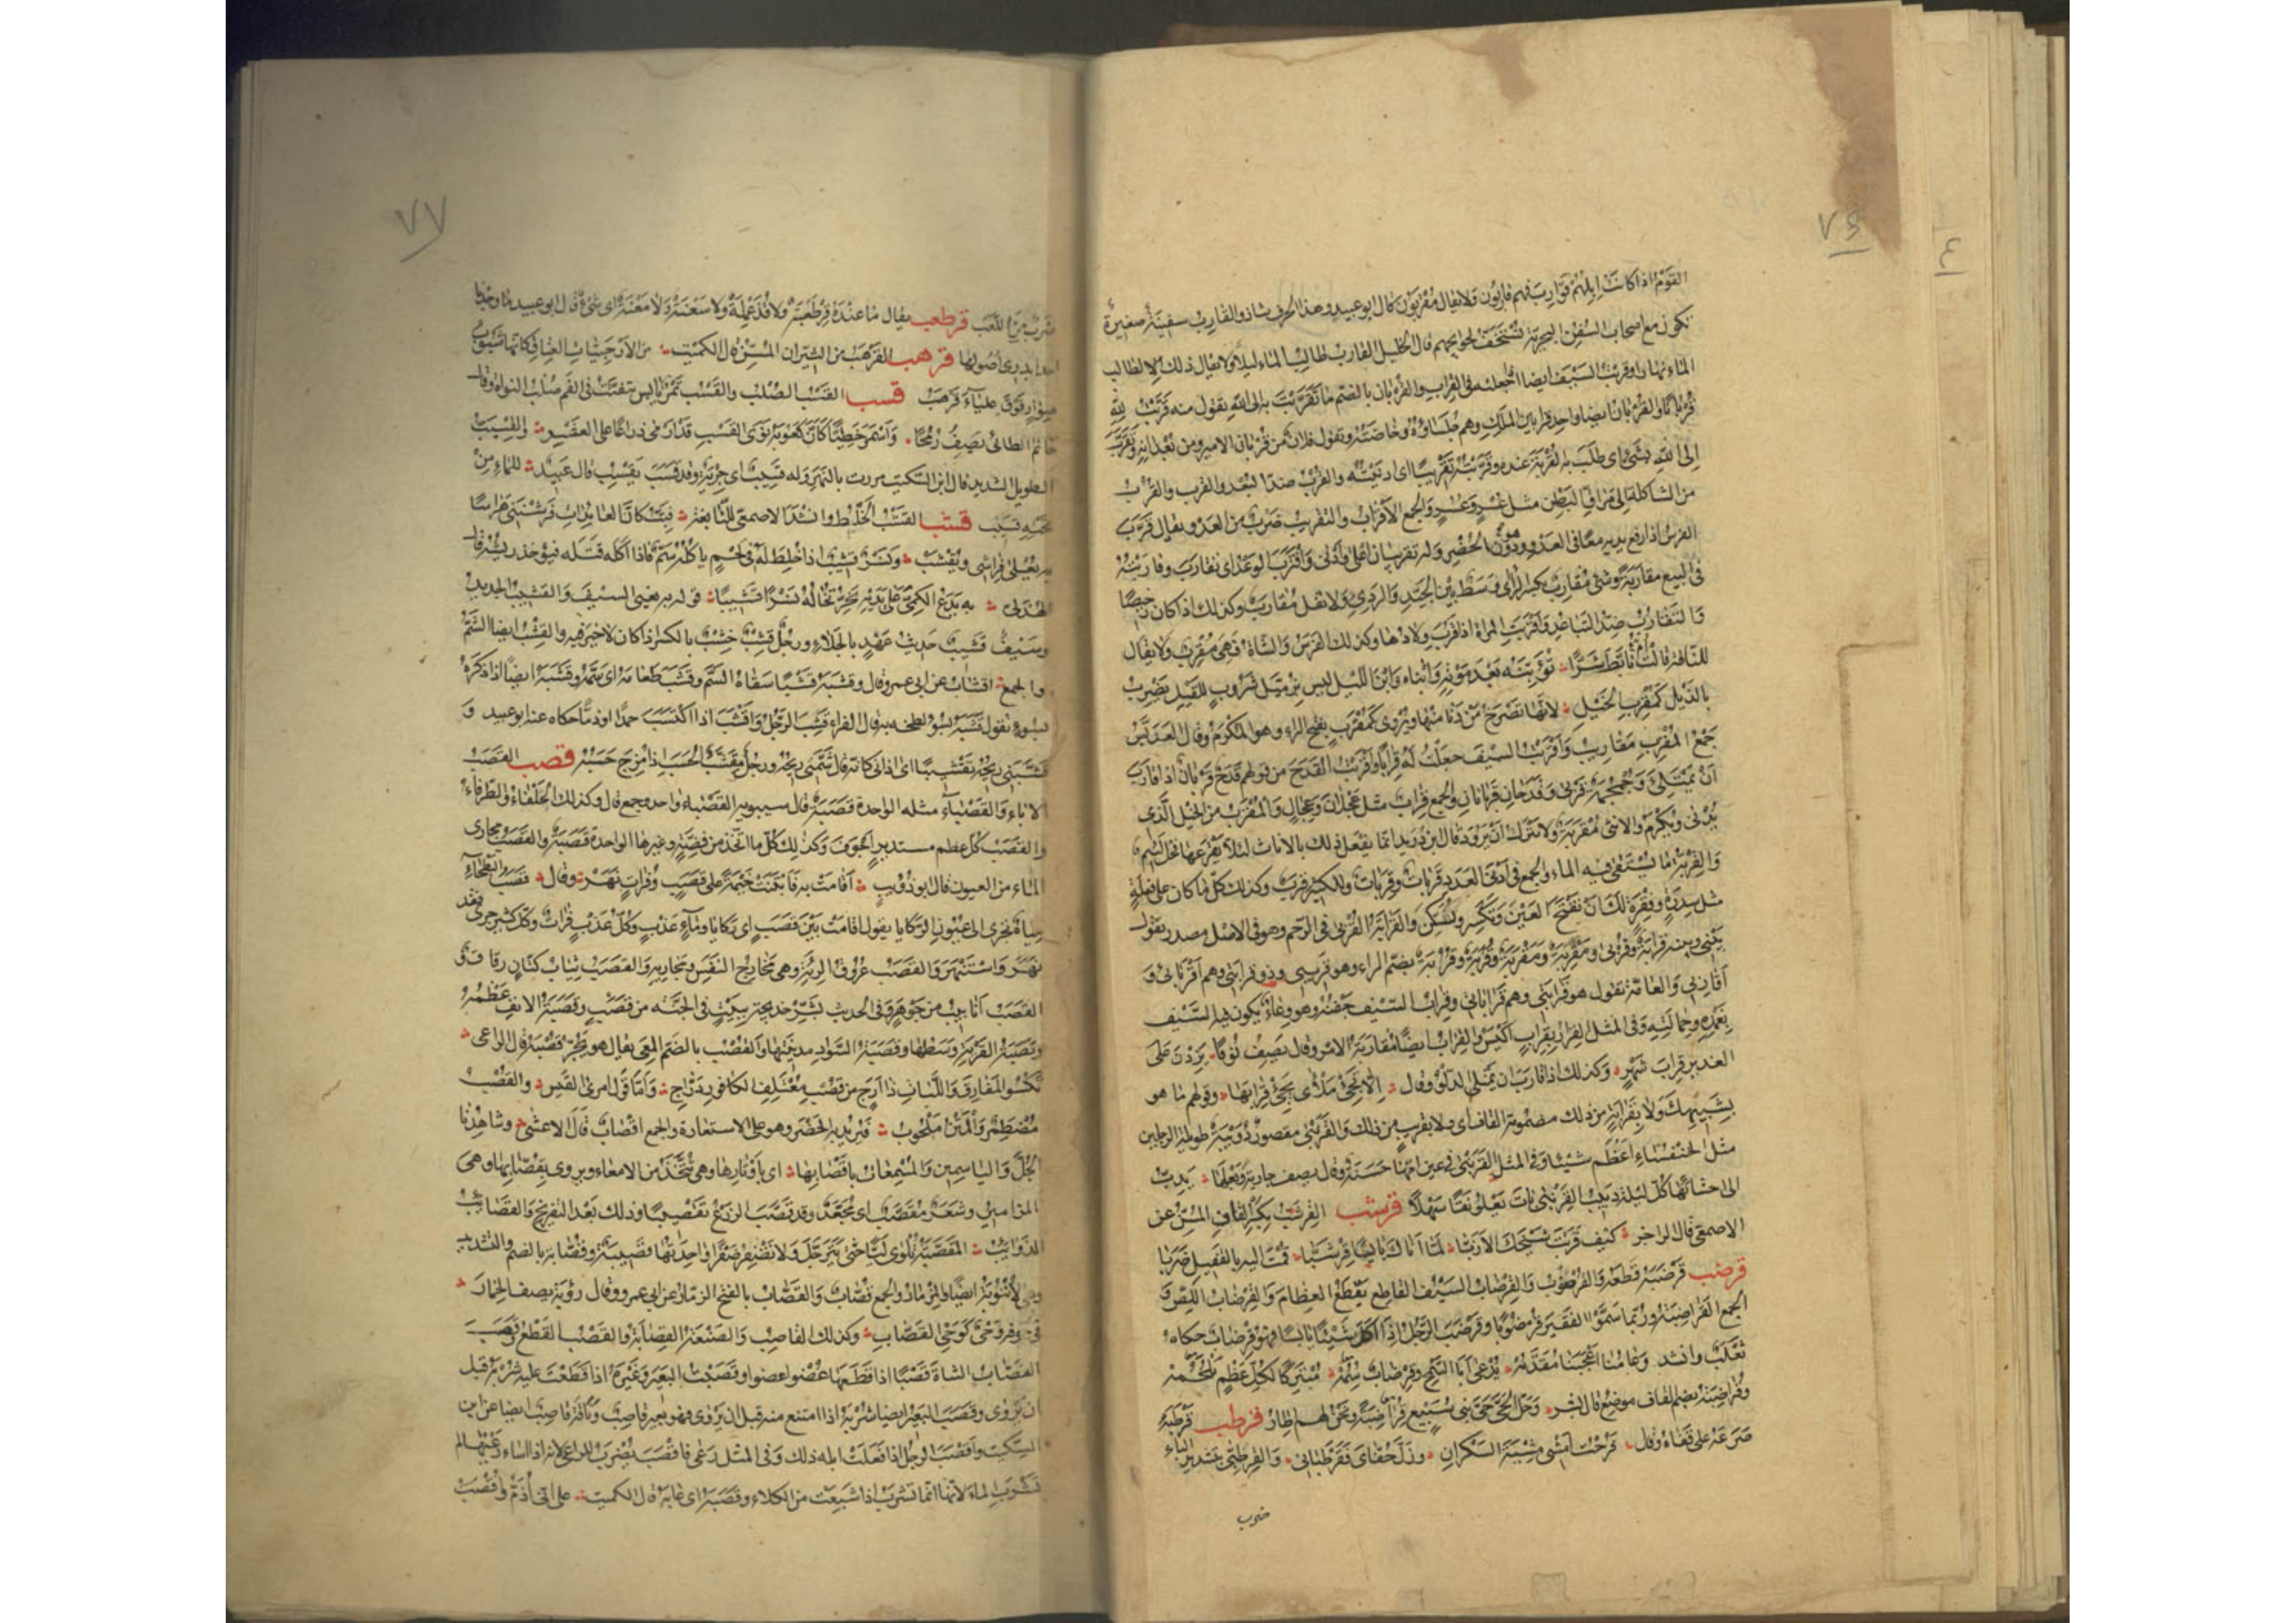 ٧٦
القوم اذا كانت ابلهم قوارب فهم قاربون ولا يقال مقربون قال ابو عبيد وهذا الحرف شاذ والقارب سفينة صغيرة
تكون مع اصحاب السفن البحرية تستخف لحوايجهم قال الخليل القارب طالب الماء ليلا ولا يقال ذلك لطالب
الماء نهارا وقربت السيف ايضا اجعلته في القراب والقربان بالضم ما تقربت به الى الله تقول منه قربت لله
قربانا والقربان ايضا واحد قرابين الملك وهم جلساؤه وخاصته وتقول فلان من قربان الامير ومن بعدانه وتقرب
الى الله بشئ اى طلب به القربة عنده وقربته تقريبا اى ادنيته والقرب ضد البعد والقرب والقرب
من الشاكلة الى مراق البطن مثل عسر وعسر والجمع الاقراب والتقريب ضرب من العدو ويقال قرب
الفرس اذا رفع يديه معا في العدو وهو دون الحضر وله تقريبان اعلى وادنى واقترب الوعد اى تقارب وقاربته
في البيع مقاربة وشئ مقارب بكسر الراى وسط بين الجيد والردى ولا تقل مقارب وكذلك اذا كان رخيصا
والتقارب ضد التباعد واقربت المراة اذا قرب ولادها وكذلك الفرس والشاة فهى مقرب ولا يقال
للناقة قالت ام تأبط شرا تؤبنه بعد موته وابناه وابن الليل ليس بزميل شروب للقيل يضرب
بالذيل كمقرب الخيل لانها تضرح من دنا منها ويروى كمقرب بفتح الراء وهو المكرم وقال العدبس
جمع المقرب مقاريب واقربت السيف جعلت له قرابا واقربت القدح من قولهم قدح قربان اذا قارب
ان يمتلئ وجمجمة قربى وقدحان قربانان والجمع قراب مثل عجلان وعجال والمقرب من الخيل الذى
يدنى ويكرم والانثى مقربة ولا تترك ان ترود قال ابن دريد انما يفعل ذلك بالاناث لئلا يقرعها فحل لئيم
والقربة ما يستقى فيه الماء والجمع في ادنى العدد قربات وقربات وللكثير قرب وكذلك كل ما كان على فعلة
مثل سدرة وفقرة لك ان تفتح العين وتكسر وتسكن والقرابة القربى في الرحم وهو في الاصل مصدر تقول
بينى وبينه قرابة وقربى ومقربة ومقربة وقربة وقربة بضم الراء وهو قريبى وذو قرابتى وهم اقربائى و
اقاربى والعامة تقول هو قرابتى وهم قراباتى وقراب السيف جفنه وهو وعاء يكون فيه السيف
بغمده وحمالته وفي المثل الفرار بقراب اكيس والقراب ايضا مقاربة الامر وقال يصف نوقا يزدن على
العدير قراب شهر وكذلك اذا قارب ان يمتلئ الدلو وقال الا تجئ ملأى يجئ قرابها وقولهم ما هو
بشبيهك ولا بقرابة من ذلك مضمومة القاف اى ولا بقريب من ذلك والقرنبى مقصور دويبة طويلة الرجلين
مثل الخنفساء اعظم شيئا وفي المثل القرنبى في عين امها حسنة وقال يصف جارية وبعلها يدب
الى احشائها كل ليلة دبيب القرنبى بات يعلو نقا سهلا قرشب القرشب بكسر القاف المسن عن
الاصمعى قال الراجز كيف قريت شيخك الازبا لما اتاك يابسا قرشبا قمت اليه بالقفيل ضربا
قرضب قرضبه قطعه والقرضوب والقرضاب السيف القاطع يقطع العظام والقرضاب اللص و
الجمع القراضبة وربما سموا الفقير قرضوبا وقرضب الرجل اذا اكل شيئا يابسا فهو قرضاب حكاه
ثعلب وانشد وعامنا اعجبنا مقدمه يدعى ابا السمح وقرضاب سمه مبتركا لكل عظم يلحمه
وقراضبة بضم القاف موضع قال بشر وحل الحى حى بنى سبيع قراضبة ونحن لهم اطار قرطب قرطبه
صرعه على قفاه وقال فرحت امشى مشية السكران وزل خفاى فقرطبانى والقرطبى بتشديد الباء
ضرب
٧٧
ضرب من اللعب قرطعب يقال ما عنده قرطعبة ولا قذعملة ولا سعنة ولا معنة اى شئ قال ابو عبيد ما وجدنا
احدا يدرى اصولها قرهب القرهب من الثيران المسن قال الكميت من الارحبيات العتاق كانها شبوب
صوار فوق علياء قرهب قسب القسب الصلب والقسب تمر يابس يتفتت في الفم صلب النواة وقال
حاتم الطائى يصف رمحا واسمر خطيا كان كعوبه نوى القسب قد ارمى ذراعا على العشر والقسيب
الطويل الشديد قال ابن السكيت مررت بالنهر وله قسيب اى جرية وقد قسب يقسب قال عبيد للماء من
تحته قسيب قشب القشب الخلط وانشد الاصمعى للنابغة فبت كان العائدات فرشننى هراسا
به يعلى فراشى ويقشب ونسر قشيب اذا خلط له في لحم ياكله سم فاذا اكله قتله فيؤخذ ريشه قال
الهذلى به يدع الكمى على يديه يخر تخاله نسرا قشيبا قوله به يعنى السيف والقشيب الجديد
وسيف قشيب حديث عهد بالجلاء ورجل قشب خشب بالكسر اذا كان لا خير فيه والقشب ايضا السم
والجمع اقشاب عن ابى عمرو قال وقشبه قشبا سقاه السم وقشب طعامه اى سمه وقشبه ايضا اذا ذكره
بسوء تقول قشبه بسوء لطخه به قال الفراء قشب الرجل واقتشب اذا اكتسب حمدا او ذما حكاه عنه ابو عبيد و
قشبنى ريحه تقشيبا اى اذانى كانه قال سمنى ريحه ورجل مقشب الحسب اذا مزج حسبه قصب القصب
الاباء والقصباء مثله الواحدة قصبة قال سيبويه القصباء واحد وجمع قال وكذلك الحلفاء والطرفاء
والقصب كل عظم مستدير اجوف وكذلك كل ما اتخذ من فضة وغيرها الواحدة قصبة والقصب مجارى
الماء من العيون قال ابو ذؤيب اقامت به فابتنت خيمة على قصب وفرات نهر وقال قصب البطحاء
مياه تجرى الى عيون الركايا يقول اقامت بين قصب اى ركايا وماء عذب وكل عذب فرات وكل كثير جرى فقد
نهر واستنهر والقصب عروق الرئة وهى مخارج النفس ومجاريه والقصب ثياب كتان رقاق و
القصب انابيب من جوهر وفى الحديث بشر خديجة ببيت في الجنة من قصب وقصبة الانف عظمه
وقصبة القرية وسطها وقصبة السواد مدينتها والقصب بالضم المعى يقال هو يجر قصبه قال الراعى
تكسو المفارق واللبات ذا ارج من قصب معتلف الكافور دراج واما قول امرئ القيس والقصب
مضطمر والمتن ملحوب فيريد به الخصر وهو على الاستعارة والجمع اقصاب قال الاعشى وشاهدنا
الجل والياسمين والمسمعات باقصابها اى باوتارها وهى تتخذ من الامعاء ويروى بقصابها وهى
المزامير وشعر مقصب اى مجعد وقد قصب الزرع تقصيبا وذلك بعد التفريخ والقصائب
الذوائب المقصبة تلوى ليا حتى تترجل ولا تضفر ضفرا واحدتها قصيبة وقصابة بالضم والتشديد
وهى الانبوبة ايضا والمزمار والجمع قصاب والقصاب بالفتح الزمار عن ابى عمرو وقال رؤبة يصف الحمار
في جوفه وحى كوحى القصاب وكذلك القاصب والصنعة القصابة والقصب القطع وقصب
القصاب الشاة قصبا اذا قطعها عضوا عضوا وقصبت البعير وغيره اذا قطعت عليه شربه قبل
ان يروى وقصب البعير ايضا شربه اذا امتنع منه قبل ان يروى فهو بعير قاصب وناقة قاصب ايضا عن ابن
السكيت واقصب الرجل اذا فعلت ابله ذلك وفى المثل رعى فاقصب يضرب للراعى لانه اذا اساء رعيتها لم
تشرب الماء لانها انما تشرب اذا شبعت من الكلاء وقصبه اى عابه قال الكميت على انى اذم واقصب